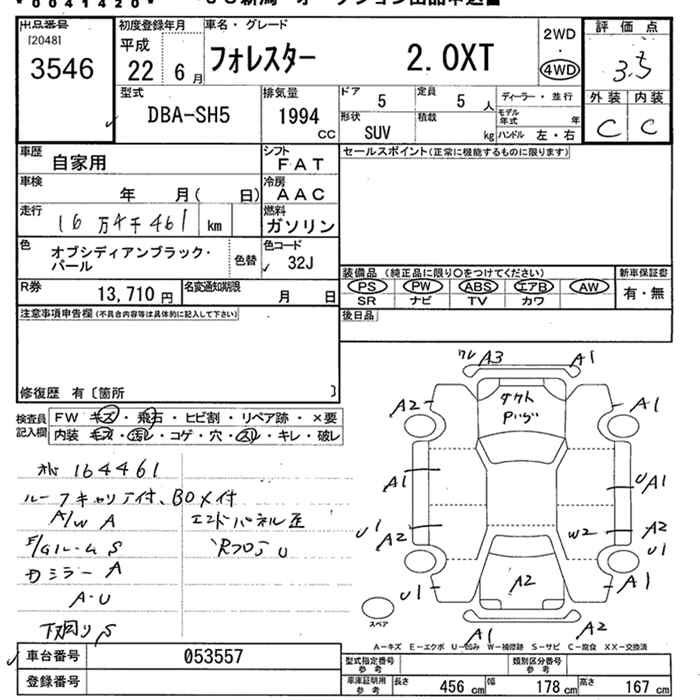 *0041420*
出品番号 [2048] 3546
初度登録年月 平成 22 6 月
車名・グレード フォレスター 2.0XT
2WD ・ 4WD
評価点 3.5
外装 内装 C C
型式 DBA-SH5
排気量 1994 cc
ドア 5 定員 5 人
形状 SUV 積載 kg
ディーラー・並行
モデル年式 年
ハンドル 左・右
車歴 自家用
シフト FAT
セールスポイント(正常に機能するものに限ります)
車検 年 月( 日)
冷房 AAC
走行 16万4千461 km
燃料 ガソリン
色 オブシディアンブラック・パール
色替
色コード 32J
装備品(純正品に限り○をつけてください)
新車保証書
PS PW ABS エアB AW
有・無
SR ナビ TV カワ
R券 13,710 円
名変通知期限 月 日
後日品
注意事項申告欄(不具合内容等は具体的に記入して下さい)
修復歴 有〔箇所 〕
検査員記入欄
FW キズ・飛石・ヒビ割・リペア跡・×要
内装 キズ・汚レ・コゲ・穴・スレ・キレ・破レ
164461
ルーフキャリア付、BOX付
A/W A エンドパネル歪
E/Gルーム S
カミラー A
A・U
下廻り S
ワレ A3 A1
ダクト
A2 A1
A1 UA1
U1 A2 W2 A2 U1
A2
U1 A1
A1 A2
スペア
A-キズ E-エクボ U-凹み W-補修跡 S-サビ C-腐食 XX-交換済
車台番号 053557
登録番号
型式指定番号 参考
類別区分番号 参考
車庫証明用 参考 長さ 456 cm 幅 178 cm 高さ 167 cm